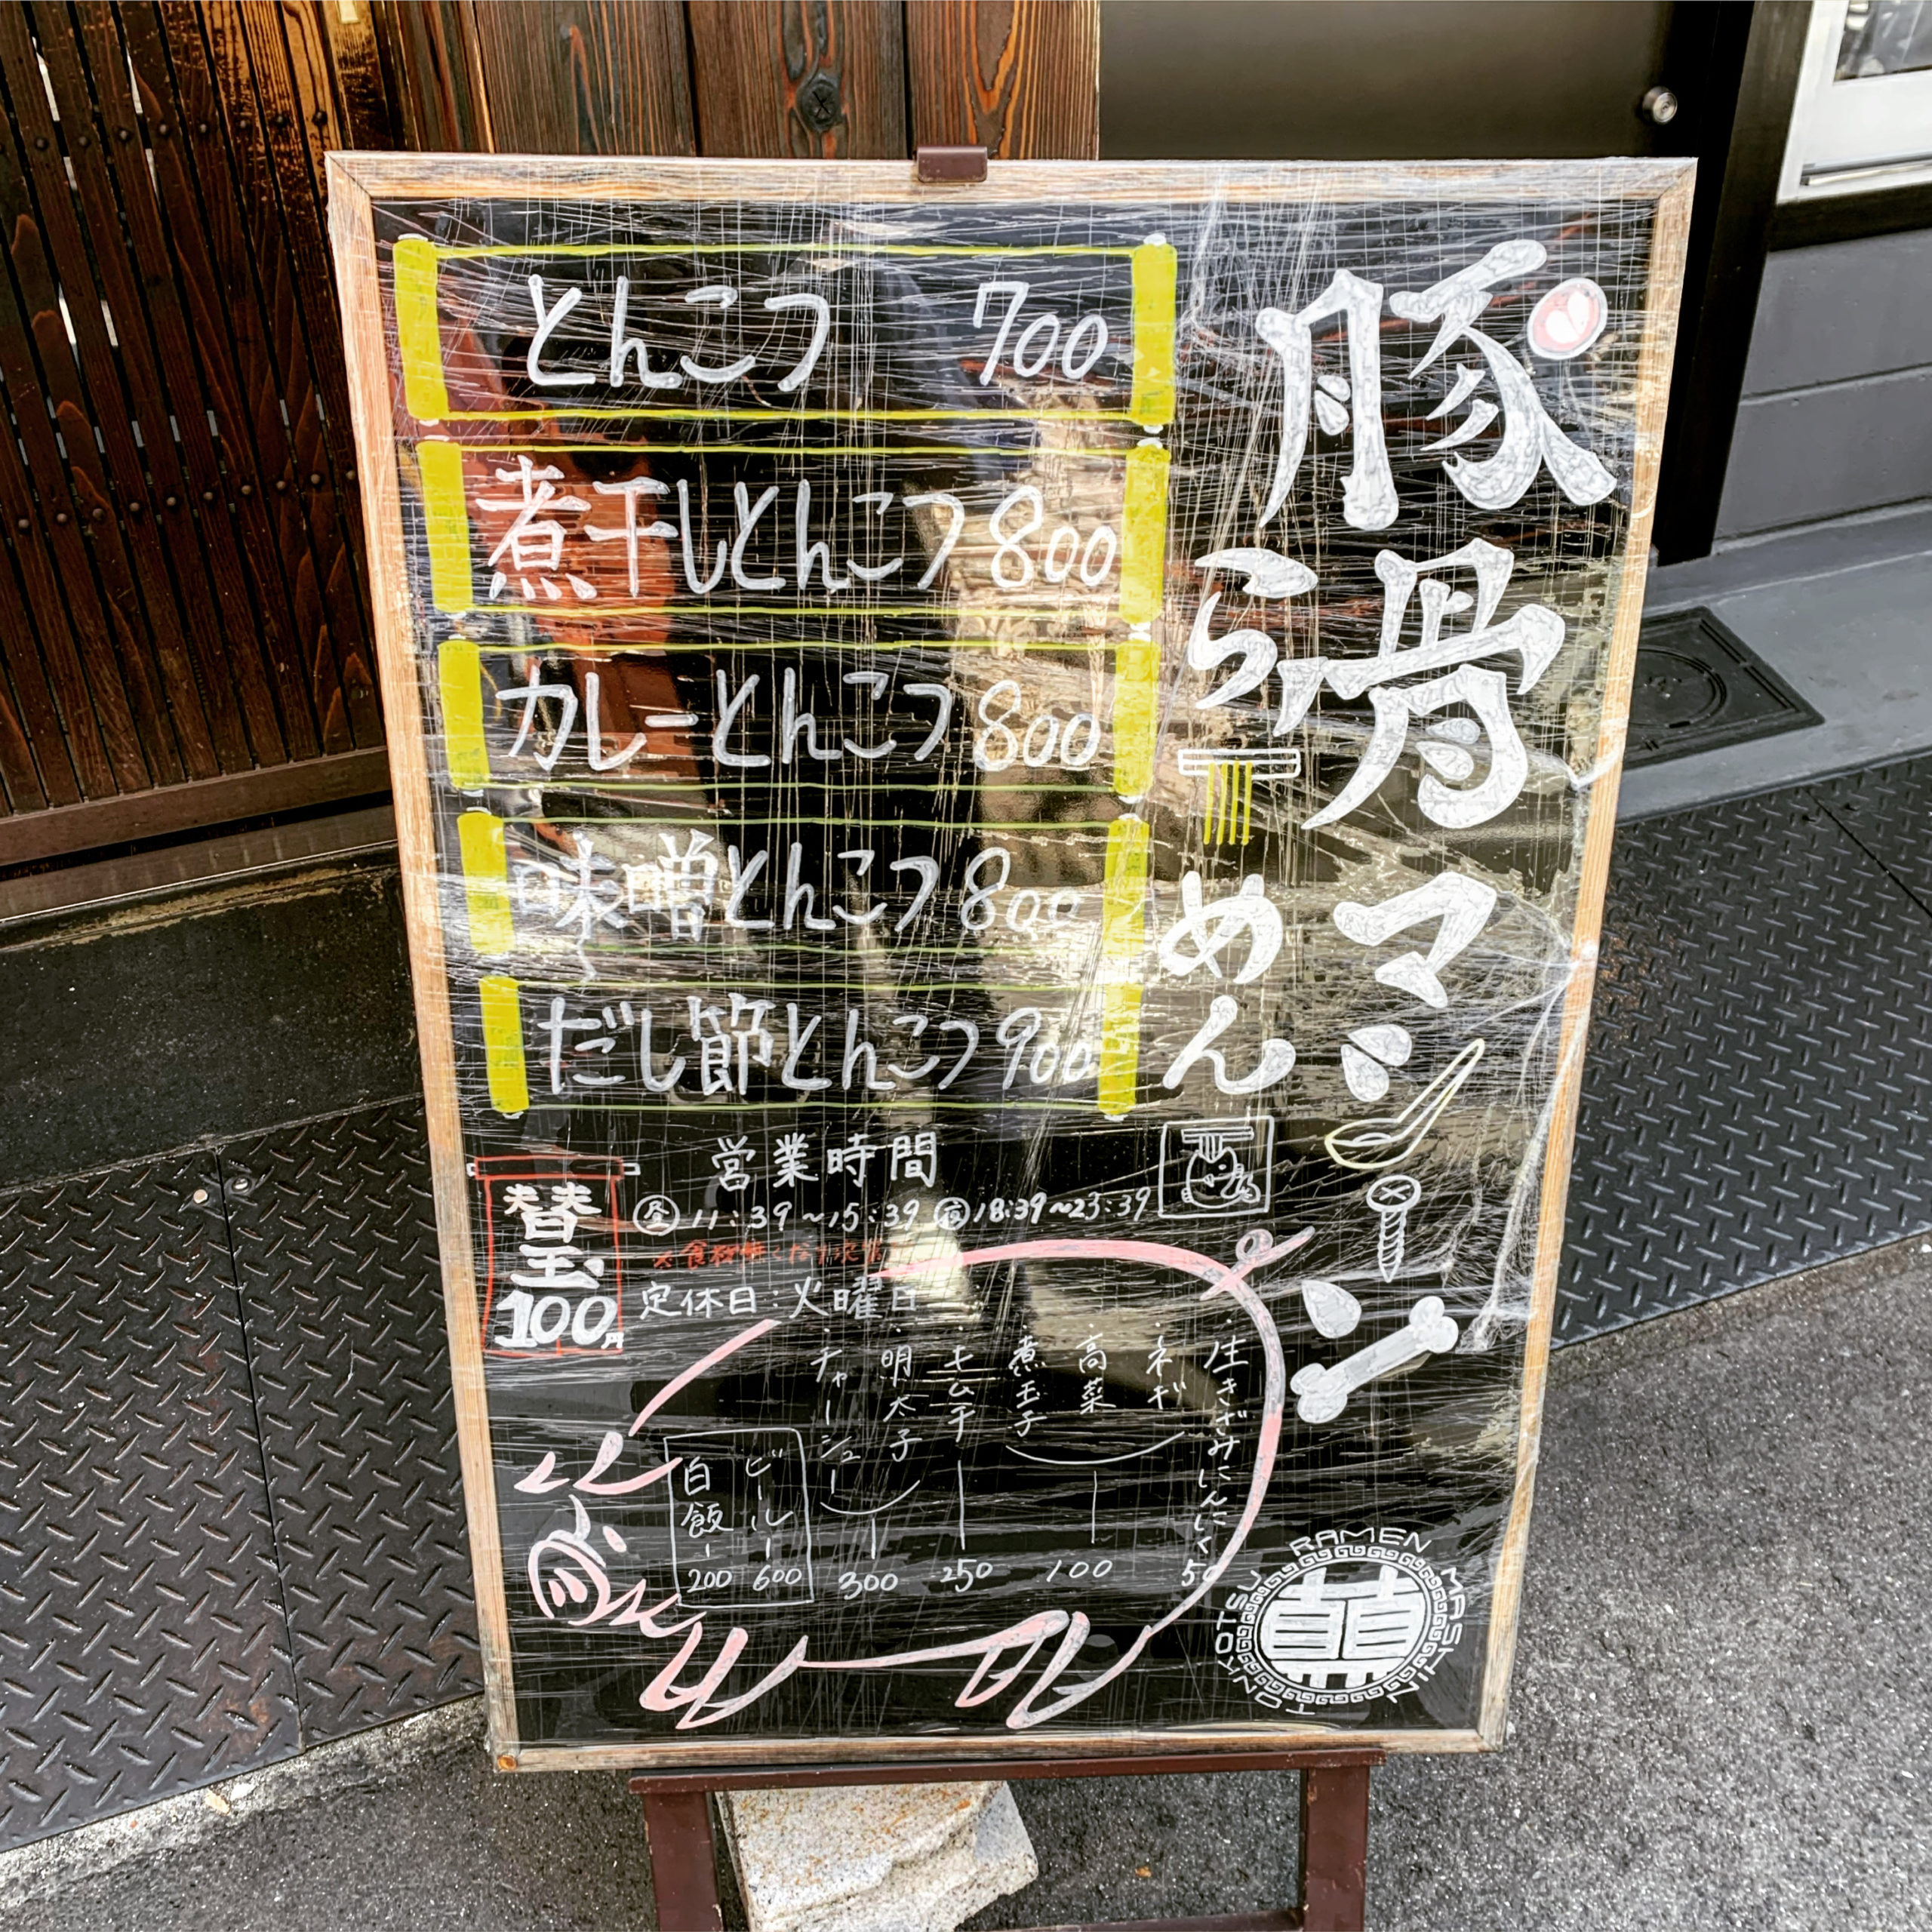 豚骨マシ
らーめん
とんこつ 700
煮干しとんこつ 800
カレーとんこつ 800
味噌とんこつ 800
だし節とんこつ 900
営業時間
昼 11:39~15:39 夜 18:39~23:39
定休日:火曜日
替玉
100円
・生きざみにんにく 50
・ネギ
・高菜
・煮玉子
100
・キムチ 250
・明太子
・チャーシュー
300
ビール 600
白飯 200
TONKOTSU RAMEN MASHI